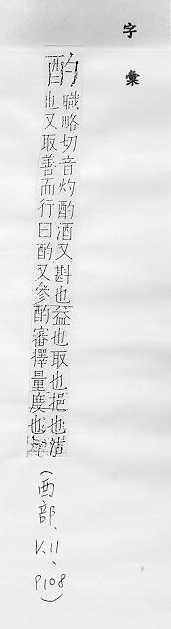 字彙
酌
職略切音灼酌酒又斟也益也取也挹也沽
也又取善而行曰酌又參酌審擇量度也
(酉部、V.11、P108)